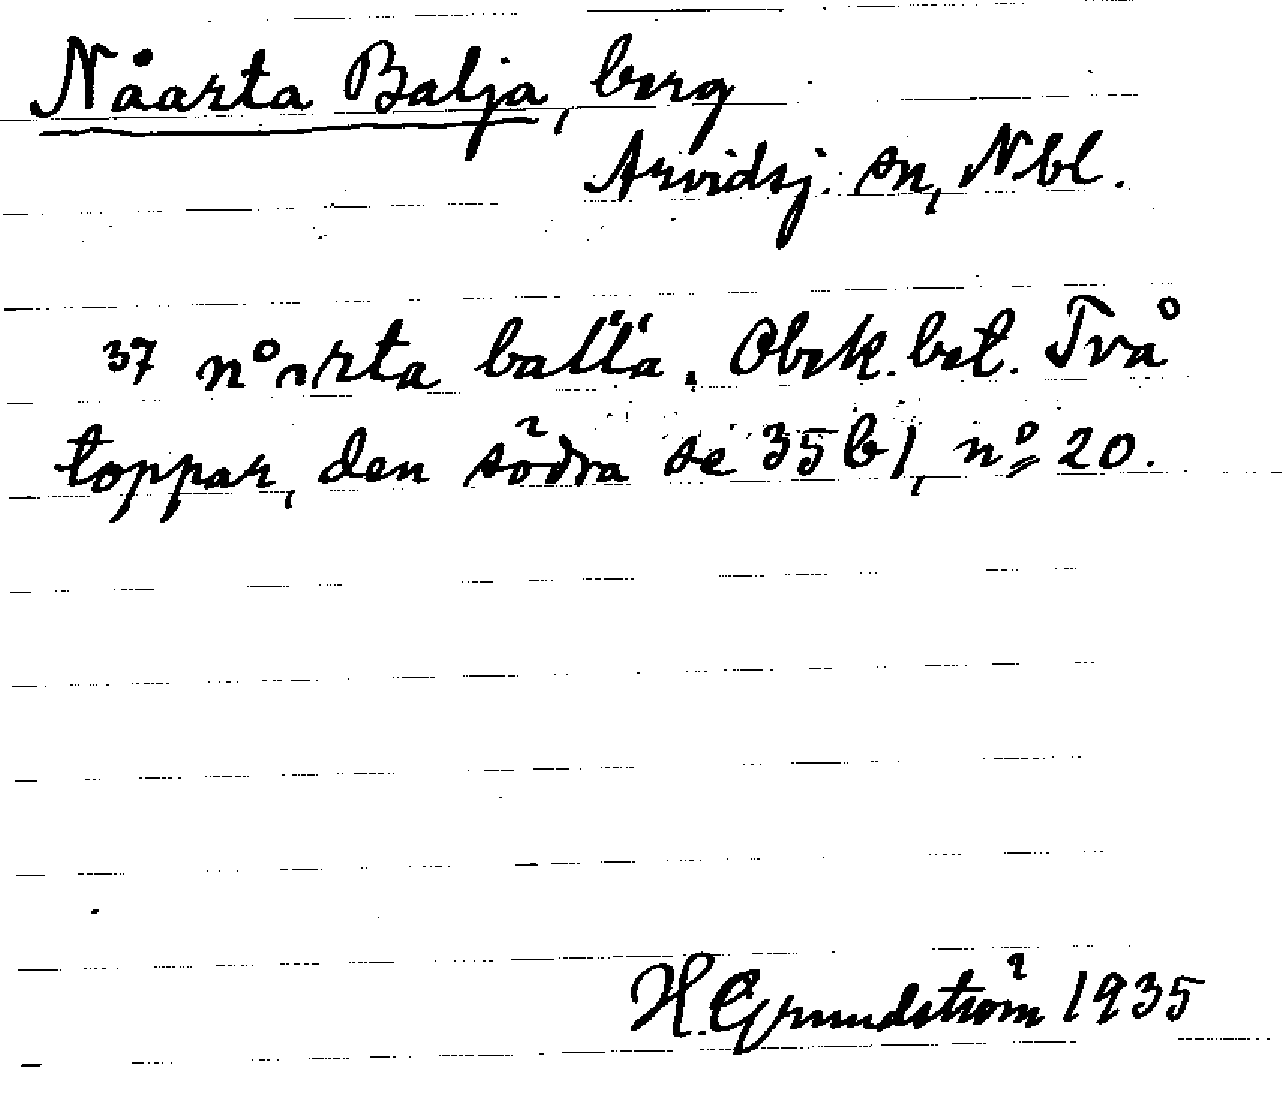 Nåarta Balja, berg
Arvidsj. sn, Nbl.
37 Obek. bet. Två
toppar, den södra se 35 b 1, nº 20.
H. Grundström 1935